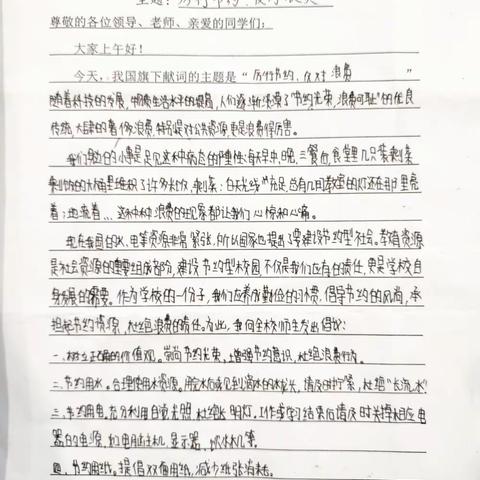 主题:厉行节约、反对浪费
尊敬的各位领导、老师、亲爱的同学们:
大家上午好!
今天,我国旗下献词的主题是“厉行节约、反对浪费”
随着科技的发展,物质生活水平的提高,人们逐渐淡漠了“节约光荣,浪费可耻”的优良
传统,大肆的奢侈浪费,特别是对公共资源更是浪费得厉害。
我们身边的小事是足见这种病态的严重性:每天早中晚,三餐
剩饭的大桶里堆积了许多米饭,剩菜;白天光线充足,总有几间教室的灯还在那里亮
着;地
现在我国的水、电等资源非常紧张,所以国家也提出了要建设节约型社会。教育资源
是社会资源的重要组成部份,建设节约型校园不仅是我们应有的责任,更是学校自
身发展的需要。作为学校的一份子,我们应养成勤俭的习惯,倡导节约的风尚,承
担起节约资源,杜绝浪费的责任。为此,我向全校师生发出倡议:
一、树立正确的价值观。崇尚节约光荣,增强节约意识,杜绝浪费行为。
二、节约用水。合理使用水资源。用脸水后或见到滴水的水龙头,请及时拧紧,杜绝“长流水”
三、节约用电。充分利用自然光照,杜绝长明灯,工作或学习结束后请及时关掉相应电
器的电源,如电脑主机、显示器、饮水机等。
四、节约用纸。提倡双面用纸,减少纸张消耗。